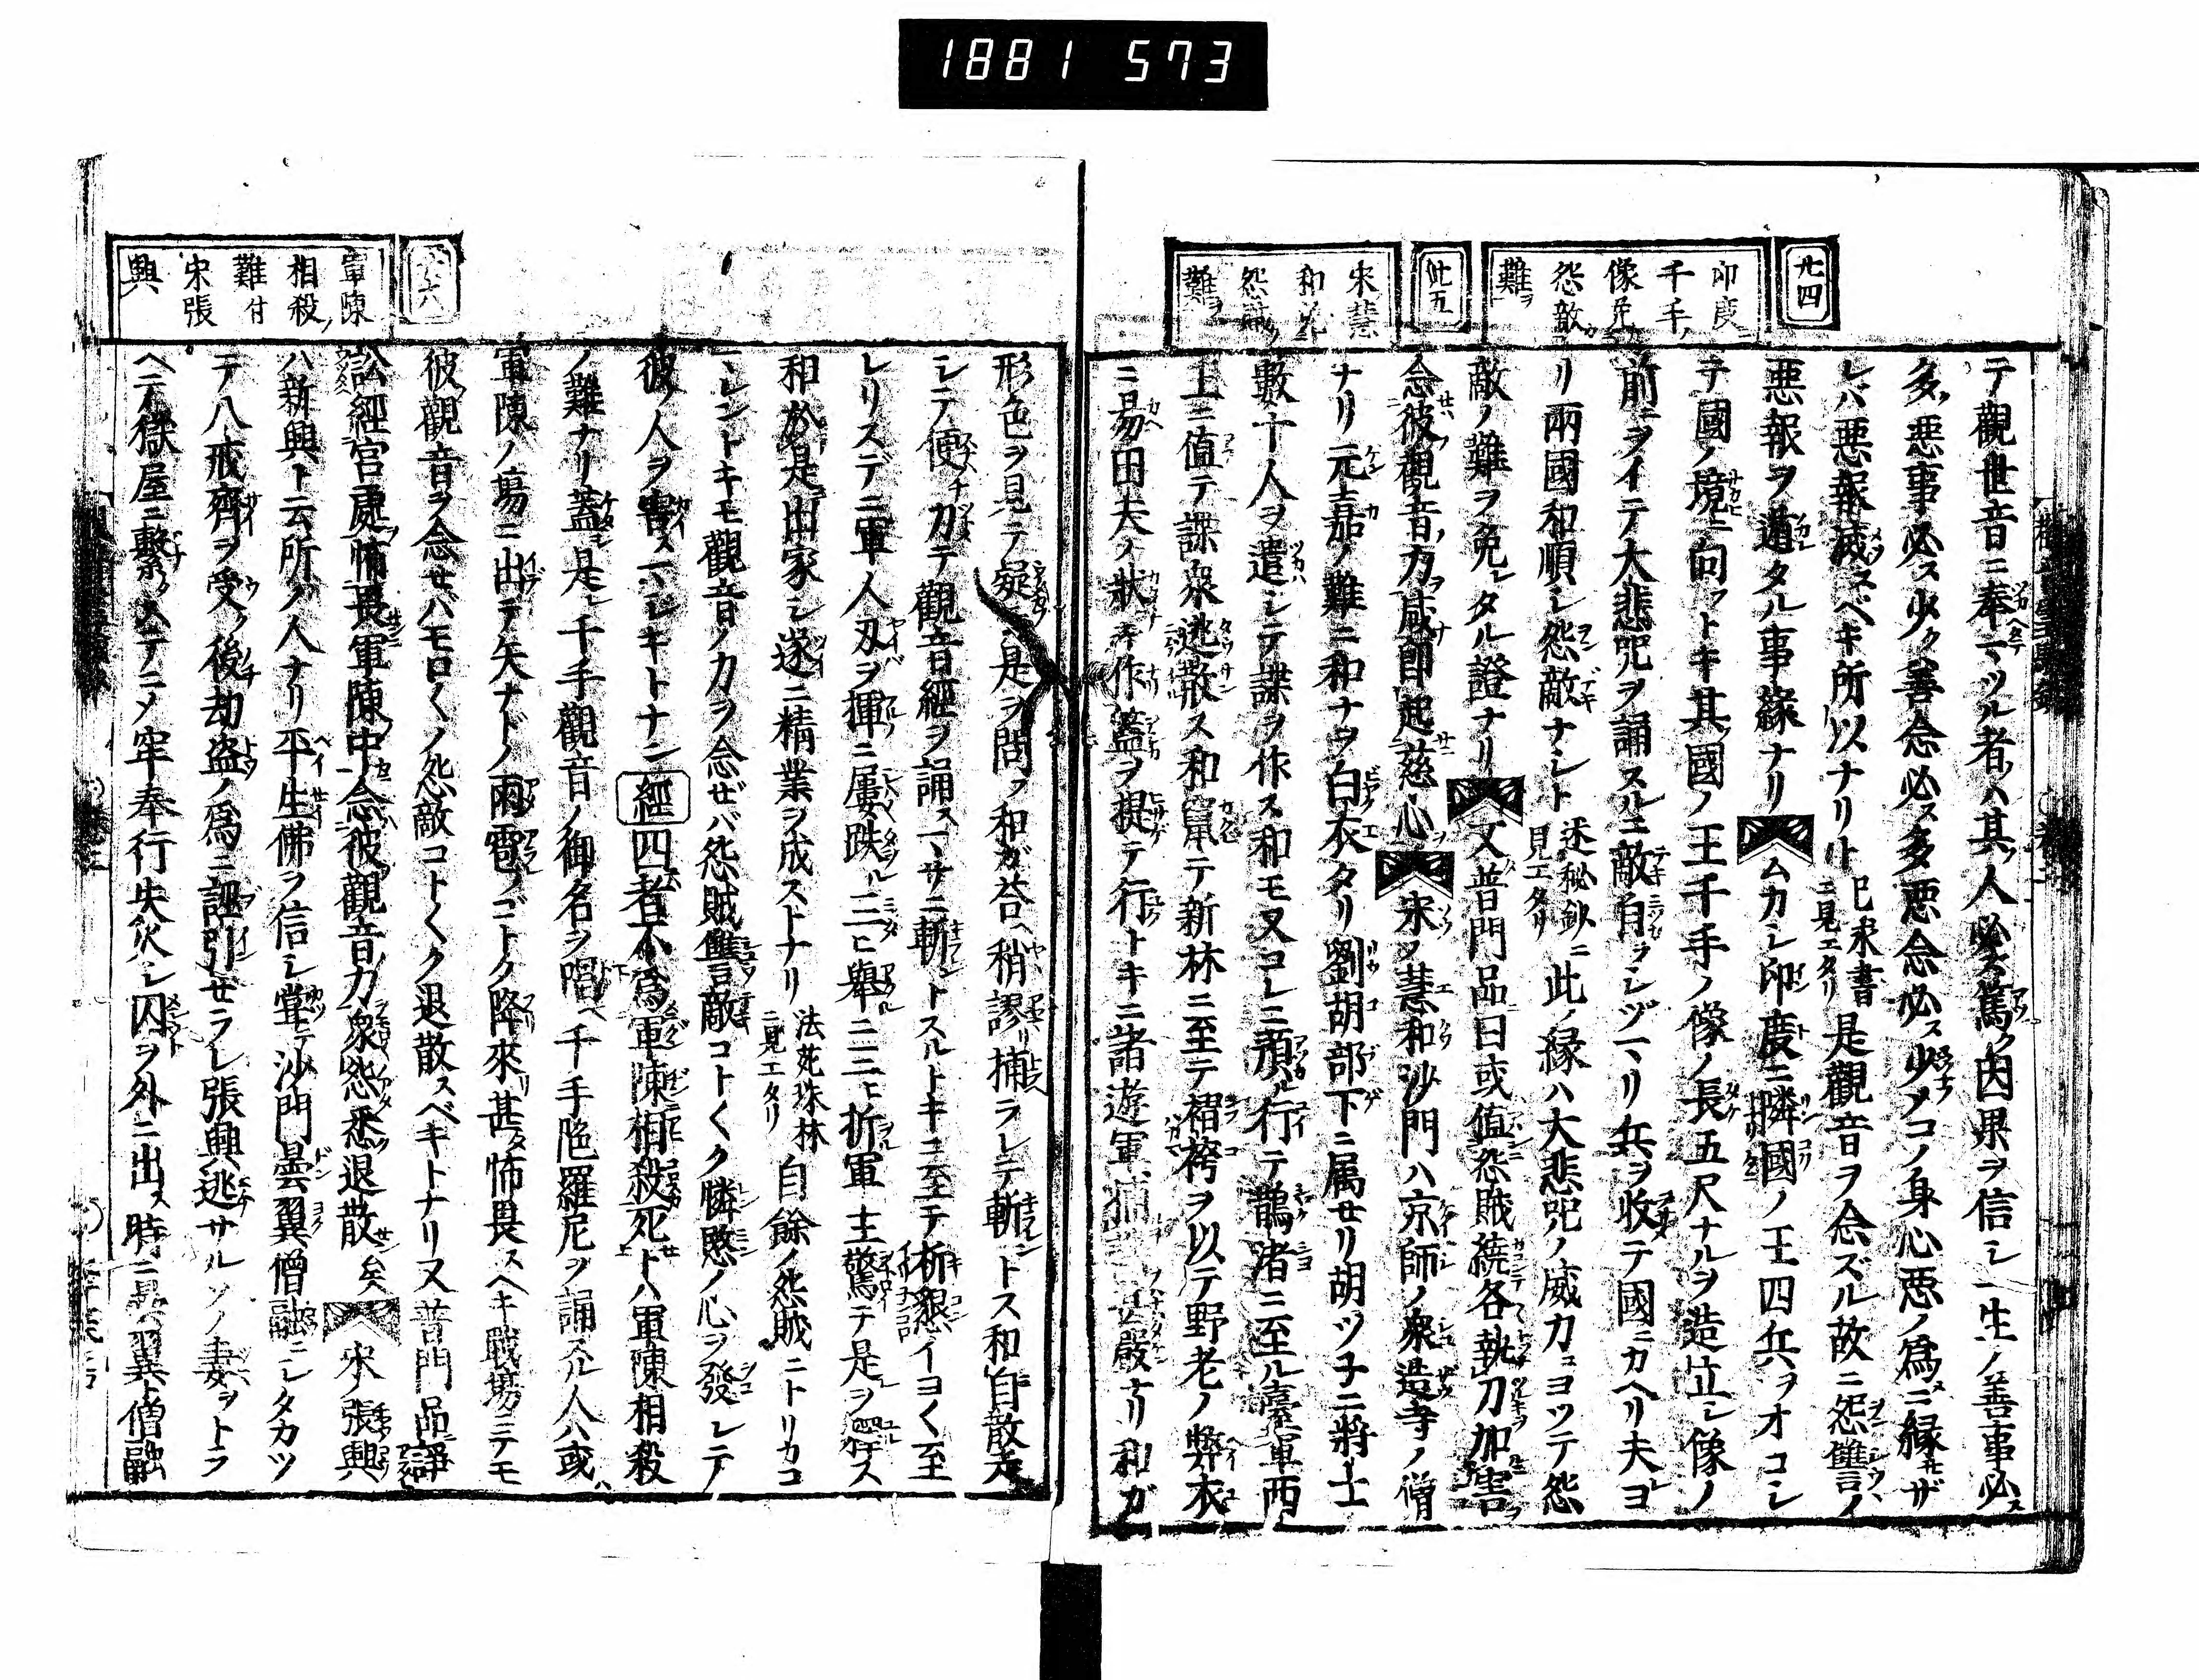 1881 573
廿四
印度
千手ノ
像免
怨敵
難ヲ
廿五
宋慧
和免
怨賊ノ
難ヲ
テ觀世音ニ奉マツル者ハ其人必ス篤ク因果ヲ信シ一生ノ善事必ス
多ク悪事必ス少ク善念必ス多悪念必ス少メコノ身心悪ノ爲ニ縁セザ
レハ悪報滅スベキ所以ナリト 巳求書ニ見エタリ 是觀音ヲ念ズル故ニ怨讎ノ
悪報ヲ遁タル事縁ナリ ムカシ印度ニ隣國ノ王四兵ヲオコシ
テ國ノ境ニ向フトキ其國ノ王千手ノ像ノ長五尺ナルヲ造立シ像ノ
前ニヲイテ大悲咒ヲ誦スルニ敵自ラシヅマリ兵ヲ收テ國ニカヘリ夫ヨ
リ兩國和順シ怨敵ナシト 迷秘鈔ニ見エタリ 此縁ハ大悲咒ノ威力ニヨツテ怨
敵ノ難ヲ免レタル證ナリ 又普門品曰或値怨賊繞各執刀加害
念彼觀音力咸即起慈心 宋ノ慧和沙門ハ京師ノ衆造寺ノ僧
ナリ元嘉ノ難ニ和ナヲ白衣タリ劉胡部下ニ属セリ胡ツ子ニ將士
數十人ヲ遣シテ諜ヲ作ス和モ又コレニ預ル行テ鵲渚ニ至ル臺軍西
上ニ値テ諜衆逃散ス和竄テ新林ニ至テ褶袴ヲ以テ野老ノ弊衣
ニ易田夫ノ狀 作 ヲ提テ行トキニ諸遊軍捕 嚴ナリ和ガ
形色ヲ見テ疑テ是ヲ問フ和ガ荅ヘ稍謬リ捕ラレテ斬ントス和自散走
シテ便チ カテ觀音經ヲ誦スマサニ斬ントスルトキニ至テ祈懇イヨく至
レリスデニ軍人刃ヲ揮ニ屢跌ル三ヒ舉ニ三ヒ折軍主驚テ是ヲ釋ス
和於是出家シ遂ニ精業ヲ成ストナリ 法苑珠林ニ見エタリ 自餘ノ怨賊ニトリカコ
マレントキモ觀音ノ力ヲ念ゼバ怨賊讎敵コトくク憐愍ノ心ヲ發シテ
彼ノ人ヲ害スマシキトナン 經 四者不爲軍陳相殺死トハ軍陳相殺
ノ難ナリ蓋是レ千手觀音ノ御名ヲ唱ヘ千手陁羅尼ヲ誦スル人ハ或ハ
軍陳ノ場ニ出テ矢ナドノ雨雹ノゴトク降來甚タ怖畏スヘキ戰場ニテモ
彼ノ觀音ヲ念セハモロくノ怨敵コトくク退散スベキトナリ又普門品ニ諍
訟經官處怖畏軍陳中念彼觀音力衆怨悉退散矣 宋ノ張興
ハ新興ト云所ノ人ナリ平生佛ヲ信シ甞テ沙門曇翼僧融ニシタカツ
テ八戒齊ヲ受ク後劫盗ノ爲ニ誣引セラレ張興逃サルソノ妻ヲトラ
ヘテ獄屋ニ繫クステニメ牢奉行失火シ囚ヲ外ニ出ス時ニ曇翼ト僧融
軍陳
相殺ノ
難付
宋張
興